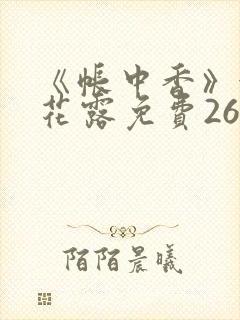 《帳中香》
花露免費26
陌陌晨曦